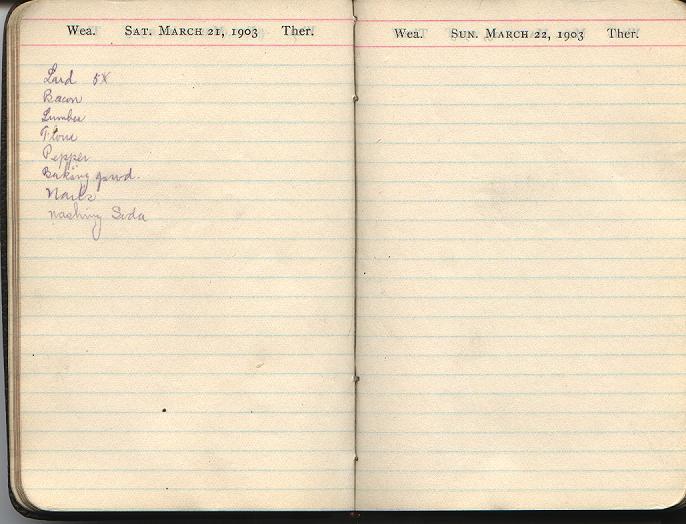 Wea. Sat. March 21, 1903 Ther.
Lard 5X
Bacon
Lumber
Flour
Pepper
Baking powd.
Nails
Washing Soda
Wea. Sun. March 22, 1903 Ther.